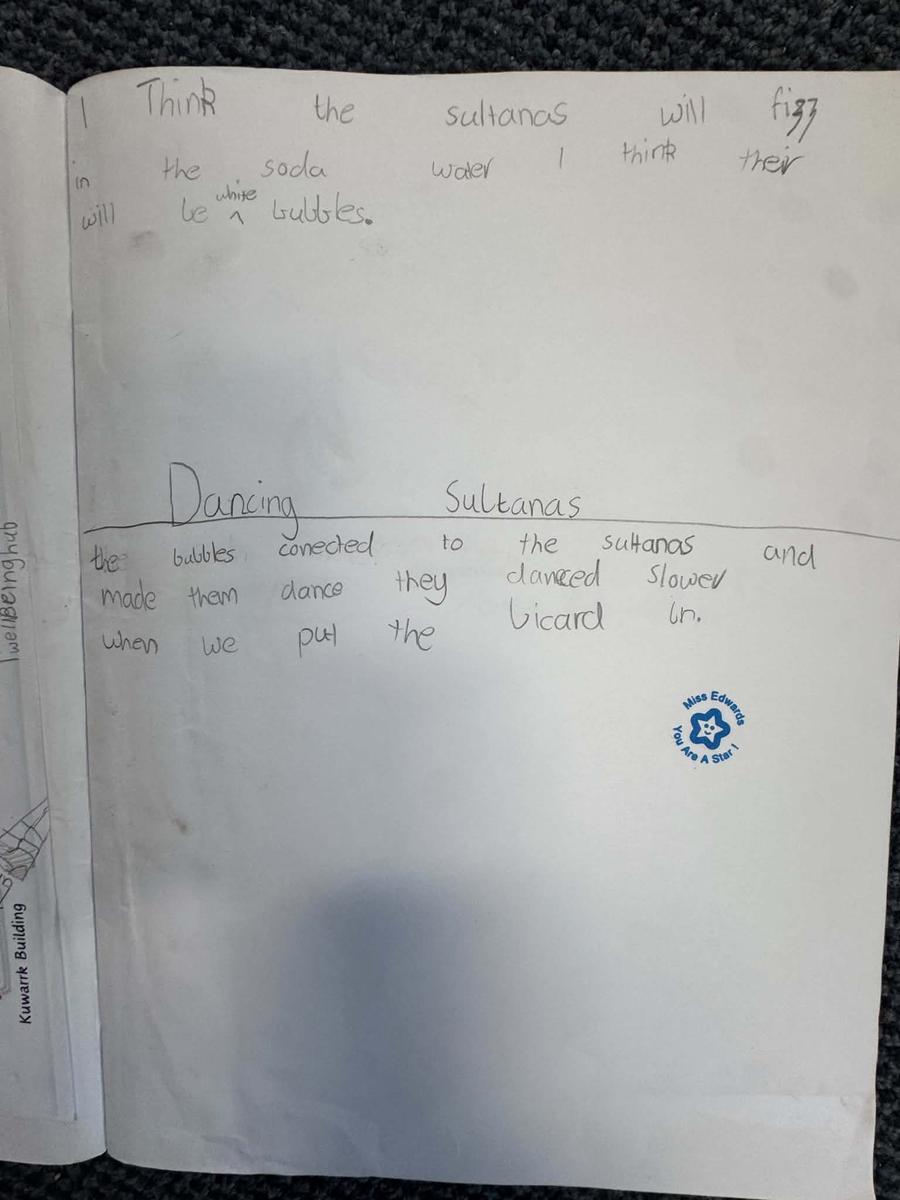 I Think the sultanas will fizz
in the soda water I think their
will be white ^ bubbles.
Dancing Sultanas
the bubbles conected to the sultanas and
made them dance they danced slower
when we put the bicard in.
Miss Edwards
You Are A Star!
wellBeinghub
Kuwarrk Building